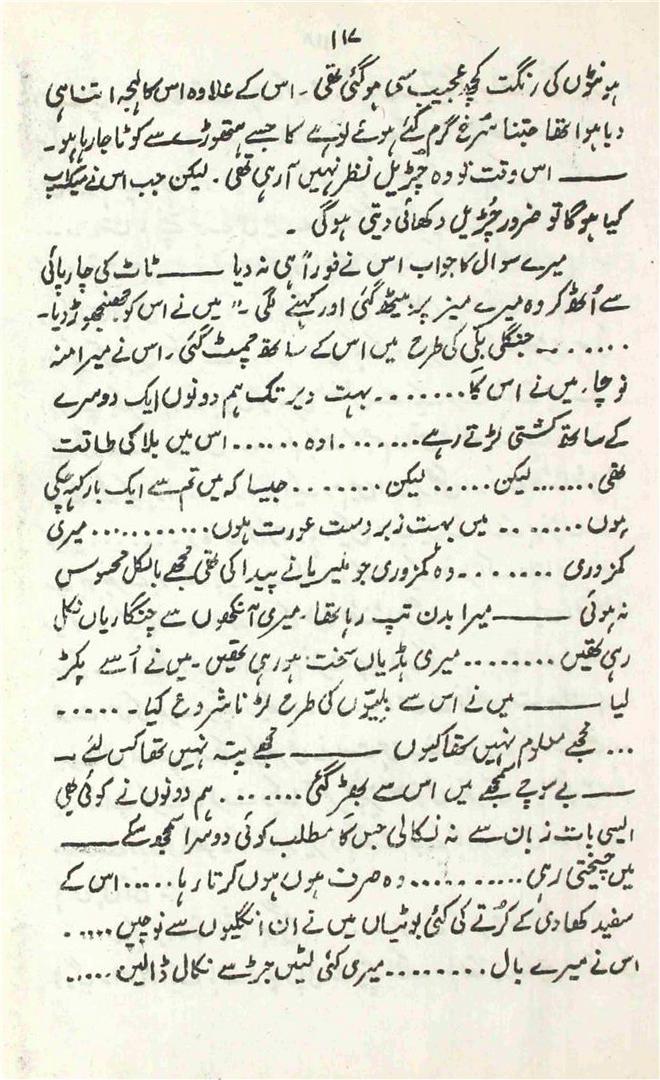 ۱۱۷
ہونٹوں کی رنگت کچھ عجیب سی ہو گئی تھی۔ اس کے علاوہ اس کا لہجہ اتنا ہی
دبا ہوا تھا جتنا سُرخ گرم کئے ہوئے لوہے کا جسے ہتھوڑے سے کوٹا جا رہا ہو۔
——— اس وقت تو وہ چڑیل نظر نہیں آ رہی تھی۔ لیکن جب اس نے میک اپ
کیا ہو گا تو ضرور چڑیل دکھائی دیتی ہوگی ۔
میرے سوال کا جواب اس نے فوراً ہی نہ دیا ——— ٹاٹ کی چارپائی
سے اُٹھ کر وہ میرے میز پر بیٹھ گئی اور کہنے لگی۔ " میں نے اس کو جھنجھوڑ دیا۔
........ جنگلی بلّی کی طرح میں اس کے ساتھ چمٹ گئی۔ اس نے میرا منہ
نوچا، میں نے اس کا........ بہت دیر تک ہم دونوں ایک دوسرے
کے ساتھ کشتی لڑتے رہے........ اوہ...... اس میں بلا کی طاقت
تھی....... لیکن..... لیکن........ جیسا کہ میں تم سے ایک بار کہہ چکی
ہوں........ میں بہت زبردست عورت ہوں........... میری
کمزوری ........ وہ کمزوری جو ملیریا نے پیدا کی تھی مجھے بالکل محسوس
نہ ہوئی ——— میرا بدن تپ رہا تھا۔ میری آنکھوں سے چنگاریاں نکل
رہی تھیں ......... میری ہڈیاں سخت ہو رہی تھیں۔ میں نے اُسے پکڑ
لیا ——— میں نے اس سے بلیّوں کی طرح لڑنا شروع کیا۔ .....
... مجھے معلوم نہیں تھا کیوں ——— مجھے پتہ نہیں تھا کس لئے —
—— بے سوچے سمجھے میں اس سے بھڑ گئی........ ہم دونوں نے کوئی بھی
ایسی بات زبان سے نہ نکالی جس کا مطلب کوئی دوسرا سمجھ سکے ———
میں چیختی رہی........... وہ صرف ہوں ہوں کرتا رہا..... اس کے
سفید کھادی کے کُرتے کی کئی بوٹیاں میں نے ان انگلیوں سے نوچیں.....
اس نے میرے بال......... میری کئی لٹیں جڑ سے نکال ڈالیں.....